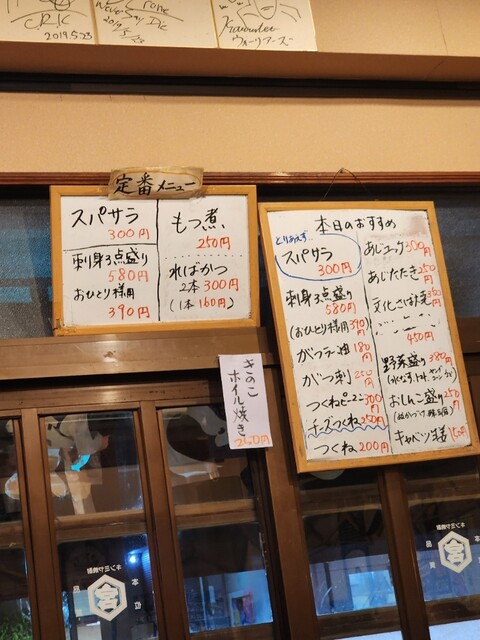 CRIC
2019.5.23
Crone
Never Say Die
2019/5/23
ウォーリアーズ
定番メニュー
スパサラ
300円
刺身3点盛り
580円
おひとり様用
390円
もつ煮
250円
ればかつ
2本 300円
(1本 160円)
きのこ
ホイル焼き
260円
本日のおすすめ
とりあえず…
スパサラ
300円
刺身3点盛り
580円
(おひとり様用 390円)
ガツラー油 180円
がつ刺 250円
つくねピーマン 300円
チーズつくね 250円
つくね 200円
あじユッケ 300円
あじたたき 250円
文化さば焼
450円
野菜盛り 380円
おしんこ盛り 250円
キャベツ 150円
宮
宮